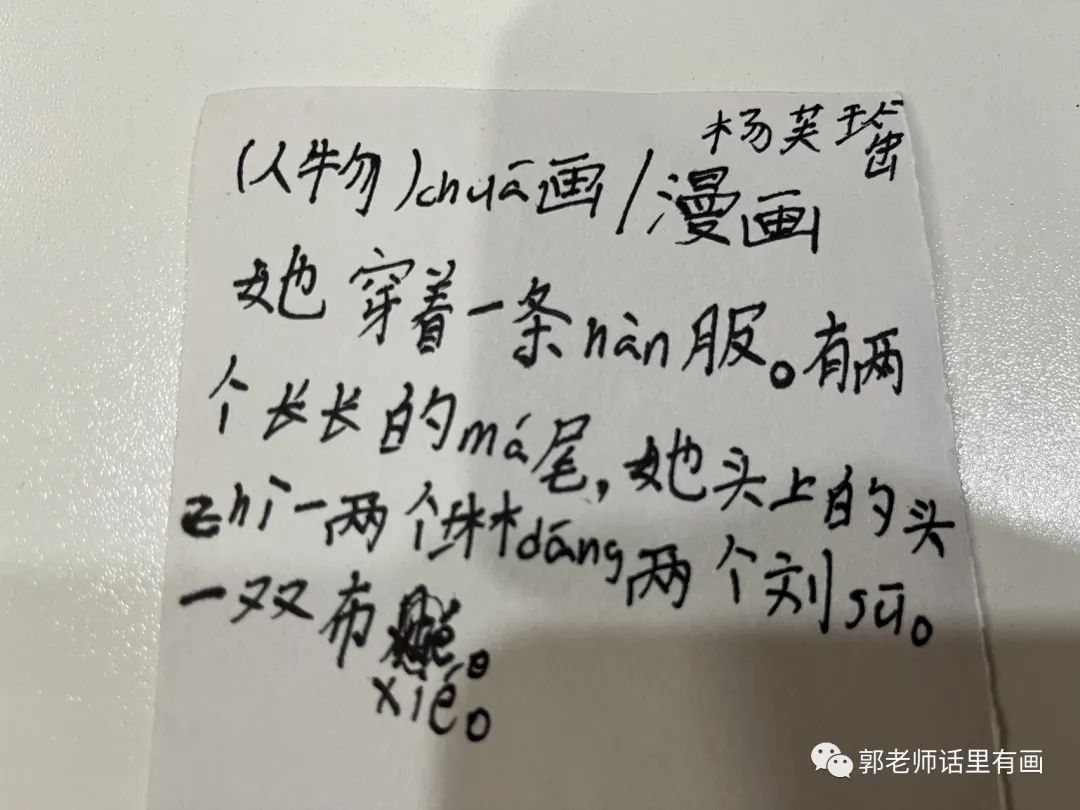 杨芙
(人物)chuā画/漫画
她穿着一条hàn服。有两
个长长的má尾,她头上的头
zhī一两个dāng两个刘sū。
一双布
xié。
郭老师话里有画